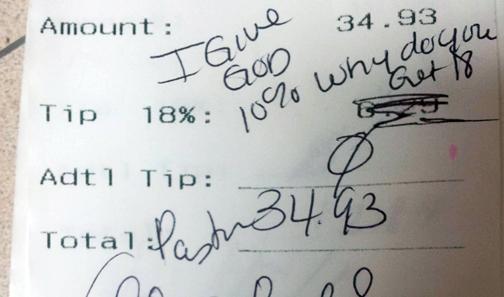 Amount: 34.93
I Give
God
10% Why do you
Get 18
Tip 18%: 6.29
Adtl Tip: 0
Total: Pastor 34.93